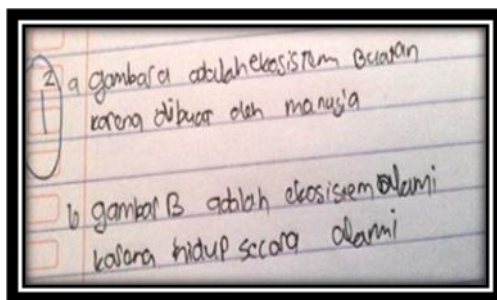 2) a gambar a adalah ekosistem Buatan
karena dibuat oleh manusia
b gambar B adalah ekosistem alami
karana hidup secara alami